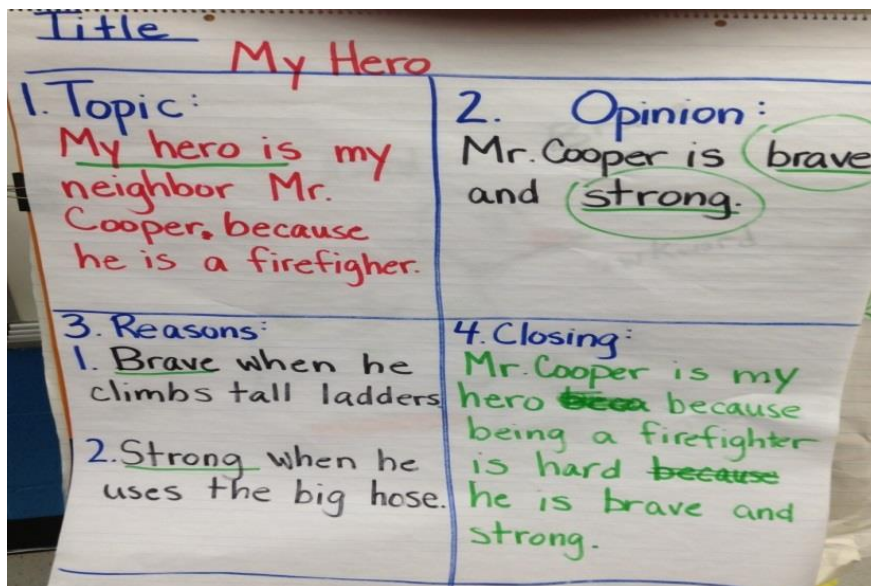 Title
My Hero
1. Topic:
My hero is my
neighbor Mr.
Cooper. because
he is a firefigher.
2. Opinion:
Mr. Cooper is brave
and strong.
3. Reasons:
1. Brave when he
climbs tall ladders
2. Strong when he
uses the big hose.
4. Closing:
Mr. Cooper is my
hero beca because
being a firefighter
is hard because
he is brave and
strong.